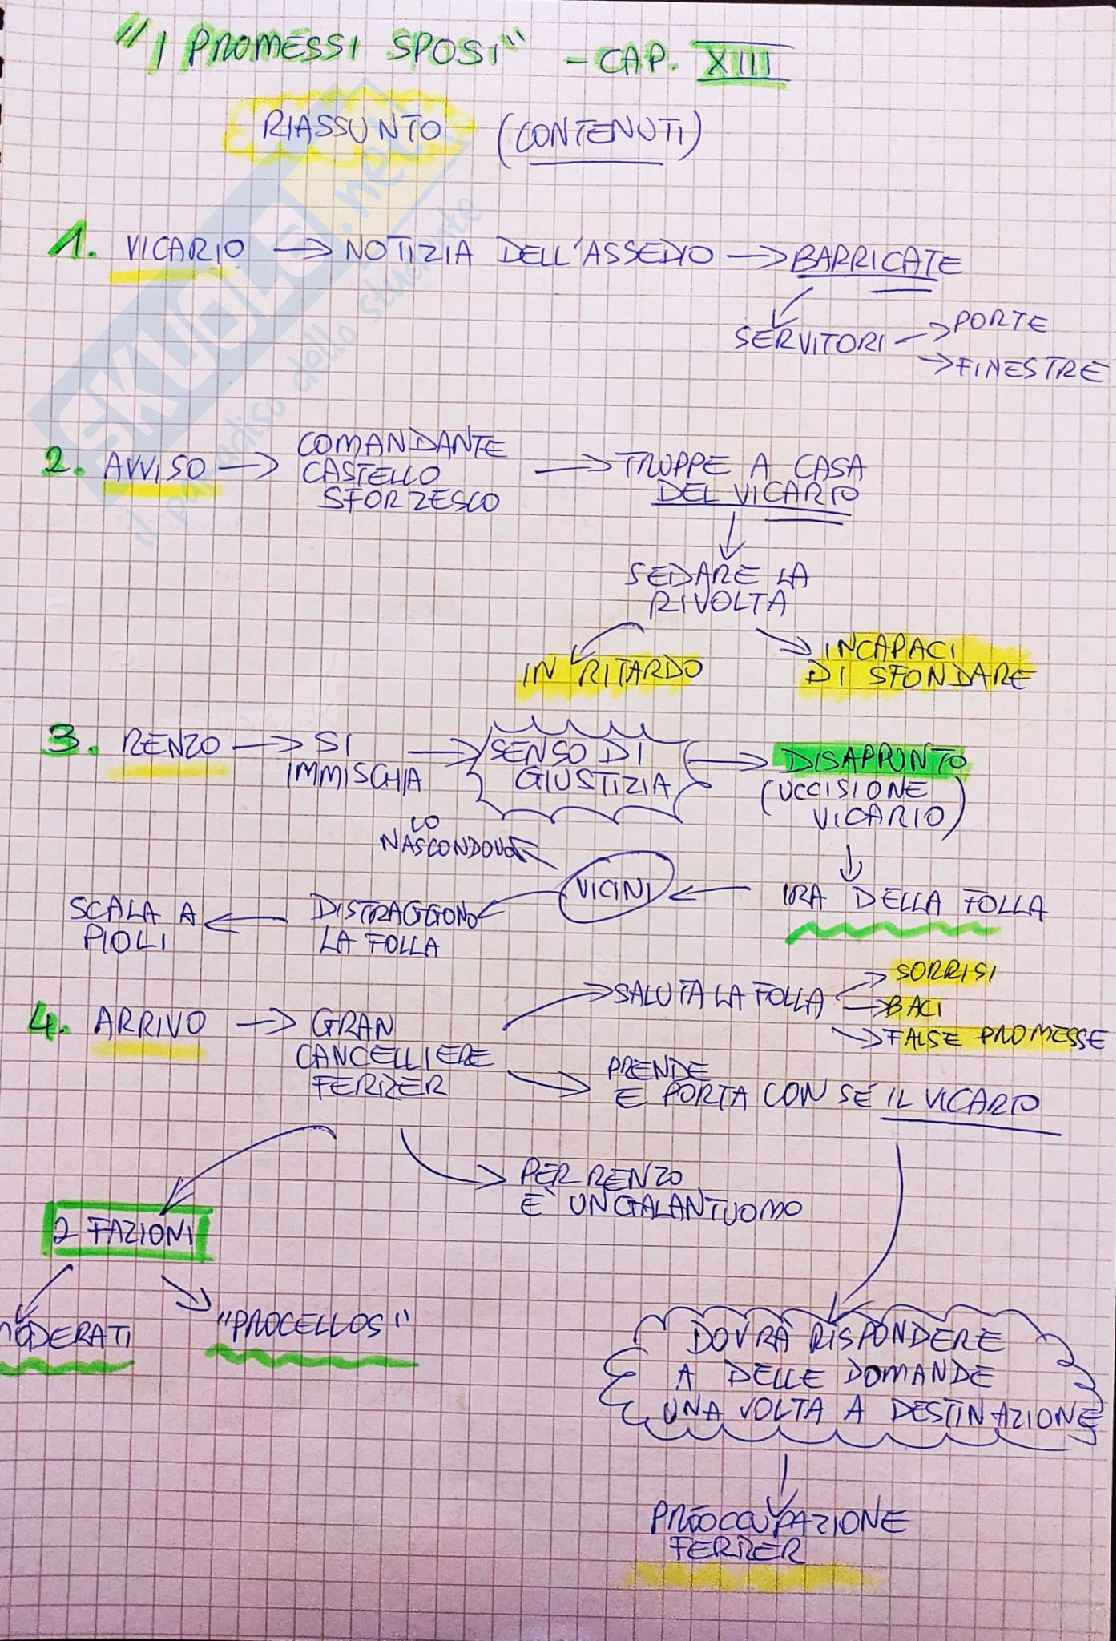 "I PROMESSI SPOSI" - CAP. XIII
RIASSUNTO (CONTENUTI)
1. VICARIO → NOTIZIA DELL'ASSEDIO → BARRICATE
SERVITORI → PORTE
→ FINESTRE
2. AVVISO → COMANDANTE
CASTELLO
SFORZESCO
→ TRUPPE A CASA
DEL VICARIO
SEDARE LA
RIVOLTA
IN RITARDO
INCAPACI
DI SFONDARE
3. RENZO → SI
IMMISCHIA
→ SENSO DI
GIUSTIZIA
→ DISAPPUNTO
(UCCISIONE
VICARIO)
IRA DELLA FOLLA
VICINI
LO
NASCONDONO
DISTRAGGONO
LA FOLLA
SCALA A
PIOLI
4. ARRIVO → GRAN
CANCELLIERE
FERRER
→ SALUTA LA FOLLA
→ SORRISI
→ BACI
→ FALSE PROMESSE
→ PRENDE
E PORTA CON SÉ IL VICARIO
PER RENZO
È UN GALANTUOMO
2 FAZIONI
MODERATI
"PROCELLOS"
DOVRÀ RISPONDERE
A DELLE DOMANDE
UNA VOLTA A DESTINAZIONE
PREOCCUPAZIONE
FERRER
SKUOLA.net
il paradiso dello studente